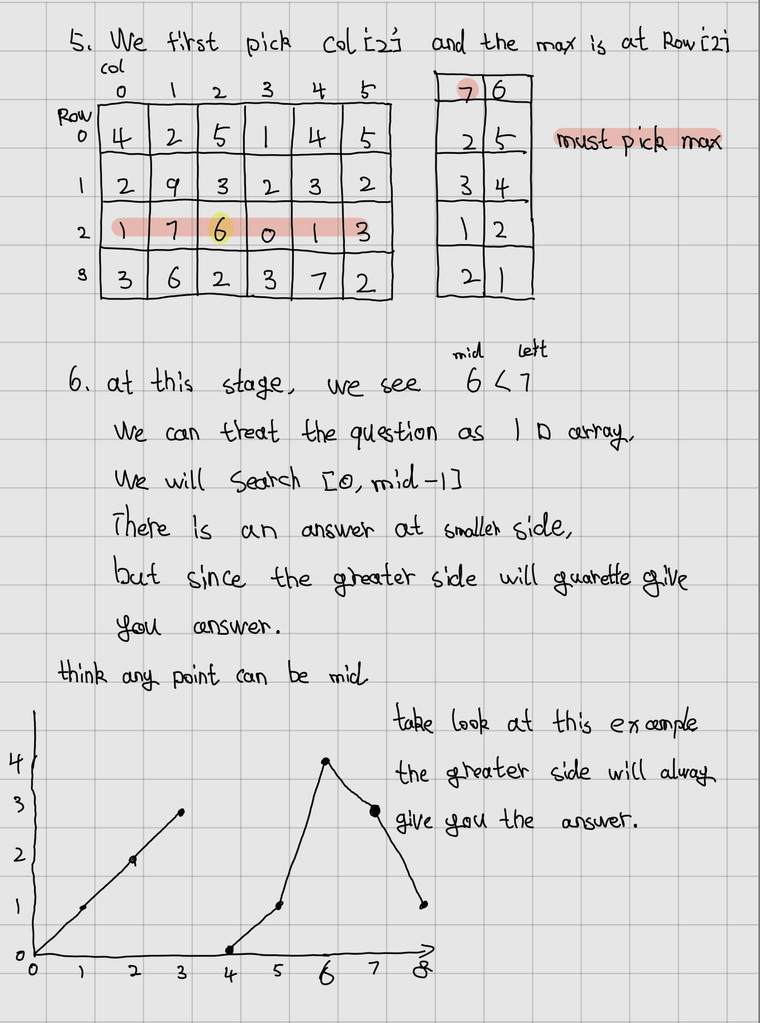 5. We first pick col[2] and the max is at Row[2]
col
0 1 2 3 4 5
Row
0 4 2 5 1 4 5
1 2 9 3 2 3 2
2 1 7 6 0 1 3
3 3 6 2 3 7 2
7 6
2 5
3 4
1 2
2 1
must pick max
mid left
6. at this stage, we see 6 < 7
We can treat the question as 1D array,
We will Search [0, mid-1]
There is an answer at smaller side,
but since the greater side will guarette give
you answer.
think any point can be mid
take look at this example
the greater side will alway
give you the answer.
4
3
2
1
0
0 1 2 3 4 5 6 7 8